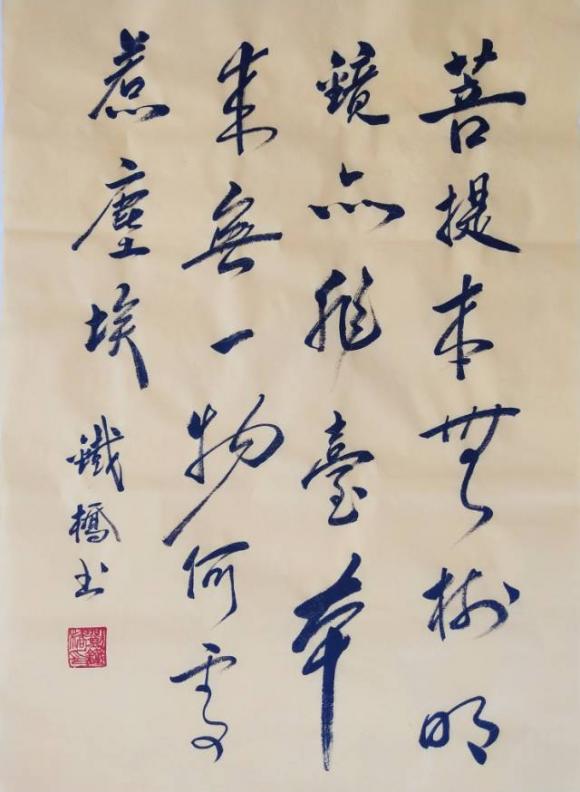 菩提本無樹明
鏡亦非臺本
來無一物何處
惹塵埃
鐵橋书